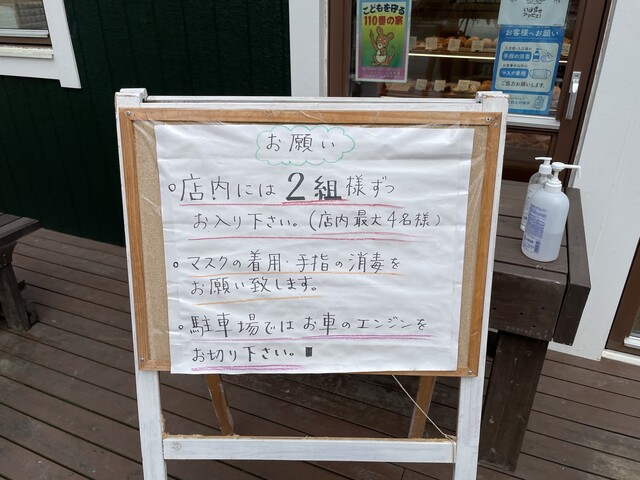 こどもを守る
110番の家
お客様へお願い
手指の消毒
マスク着用
お願い
○店内には2組様ずつ
お入り下さい。(店内最大4名様)
○マスクの着用・手指の消毒を
お願い致します。
○駐車場ではお車のエンジンを
お切り下さい。